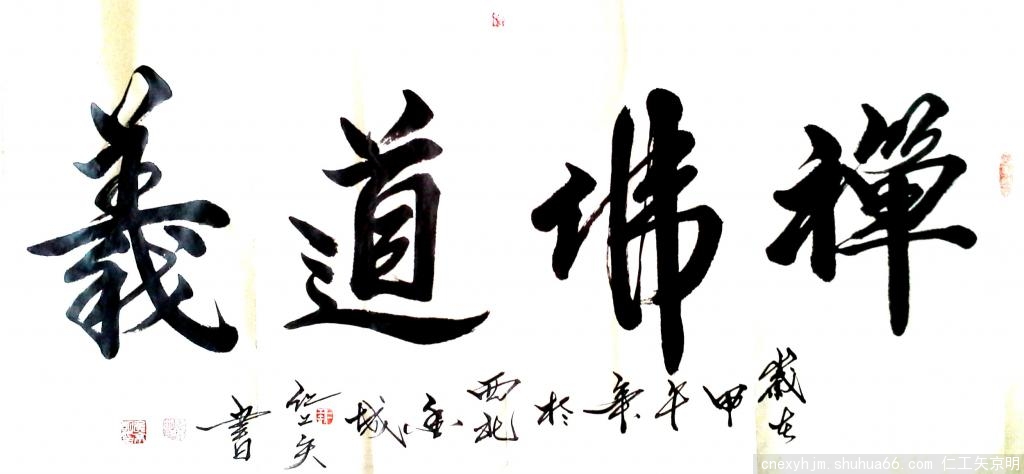 禪佛道義
歲在甲午年於西北金城仁工矢書
cnexyhjm.shuhua66.com 仁工矢京明